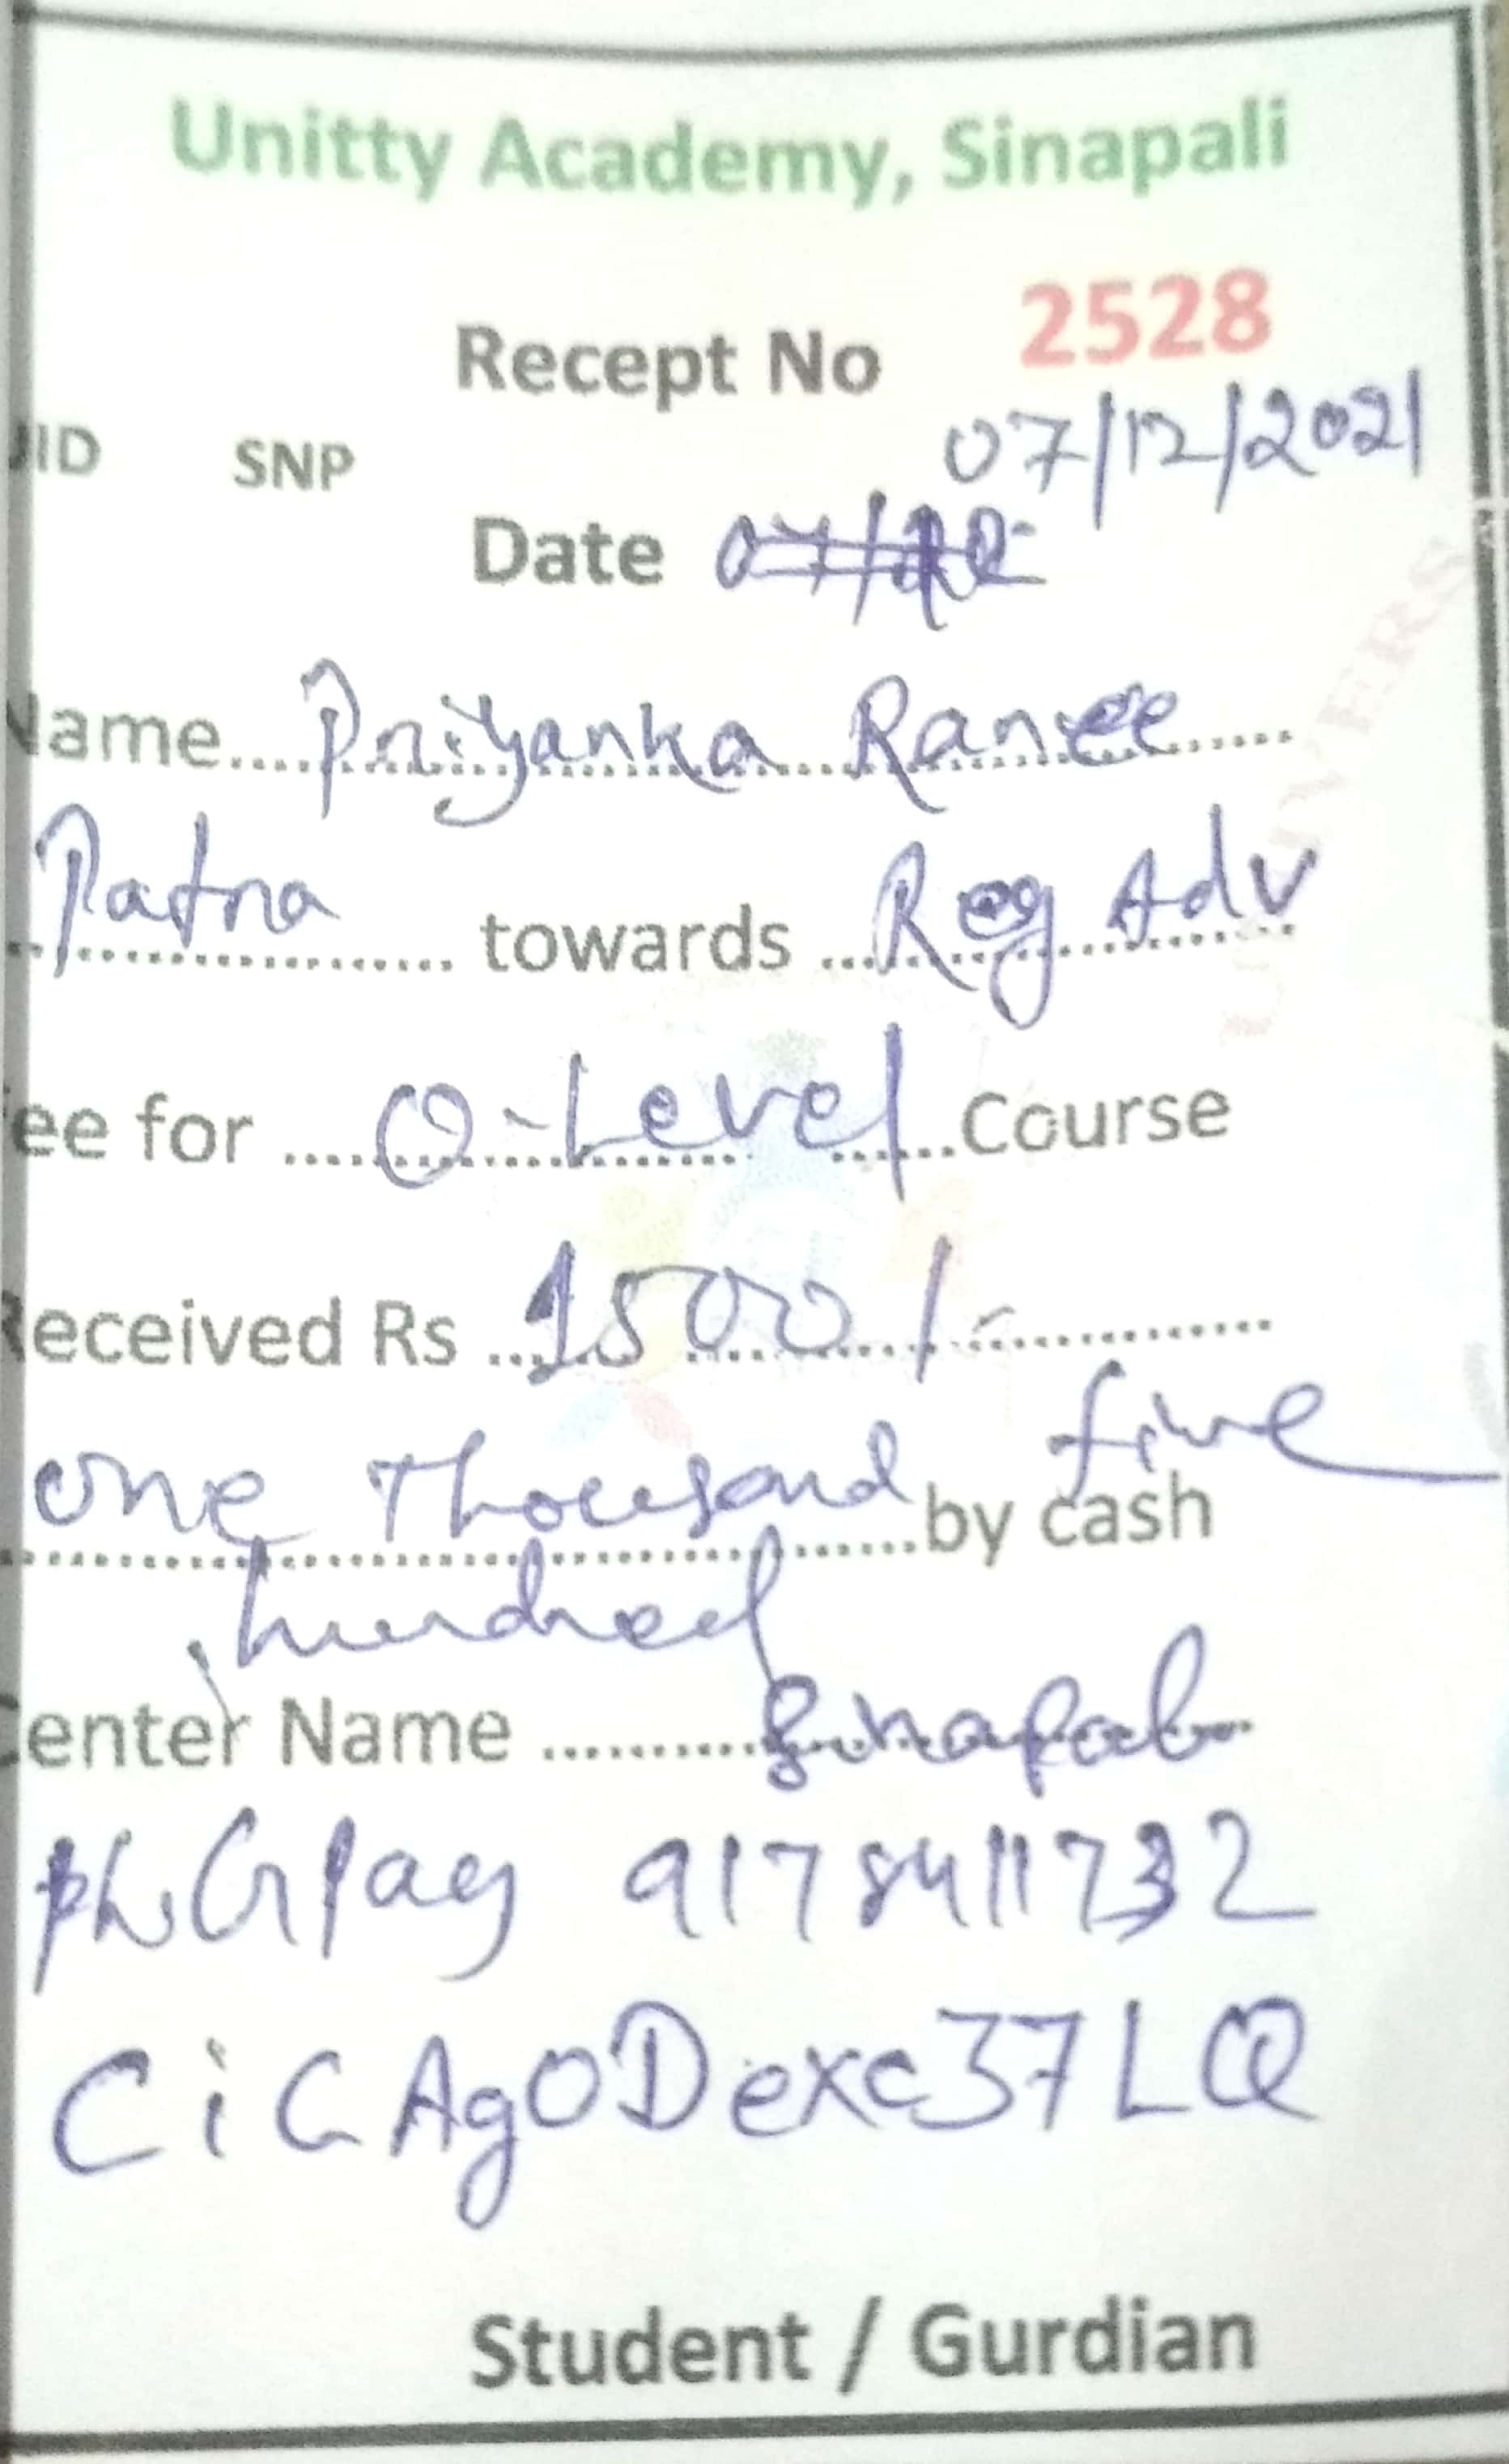 Unitty Academy, Sinapali
Recept No 2528
UID SNP 07/12/2021
Date
Name.... Priyanka Ranee
Patna towards ... Reg Adv
ee for .... O-Level ...Course
Received Rs ... 1500/-
One Thousand five
by cash
hundred
Center Name .......... Sinapali
ph Gpay 9178411732
CiCAgODexc37LQ
Student / Gurdian
UNIVERS